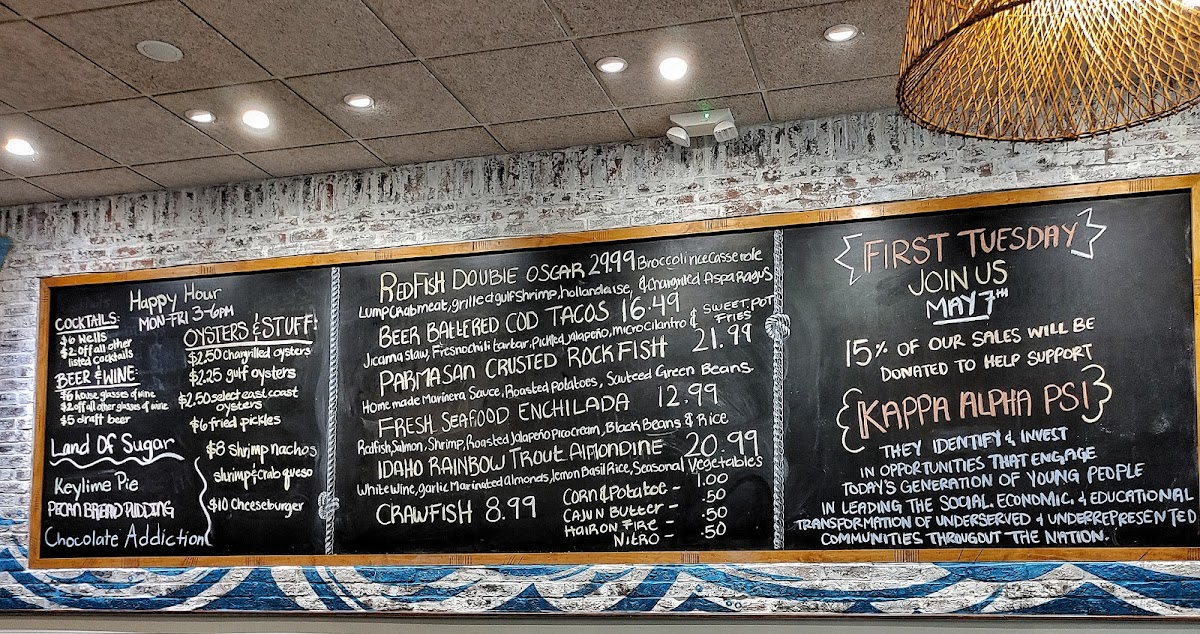 Happy Hour
MON-FRI 3-6PM
COCKTAILS:
$6 Wells
$2 off all other
listed cocktails
BEER & WINE:
$6 house glasses of wine
$2 off all other glasses of wine
$5 draft beer
OYSTERS & STUFF:
$2.50 chargrilled oysters
$2.25 gulf oysters
$2.50 select east coast
oysters
$6 fried pickles
$8 shrimp nachos
shrimp & crab queso
$10 Cheeseburger
Land Of Sugar
Keylime Pie
PECAN BREAD PUDDING
Chocolate Addiction
REDFISH DOUBLE OSCAR 29.99 Broccoli rice Casserole
Lump Crabmeat, grilled gulf shrimp, hollandaise, & Chargrilled Asparagus
BEER BATTERED COD TACOS 16.49
Jicama slaw, Fresno chili tartar, Pickled Jalapeño, micro cilantro & SWEET POT
FRIES
PARMASAN CRUSTED ROCKFISH 21.99
Homemade Marinera Sauce, Roasted potatoes, Sauteed Green Beans
FRESH SEAFOOD ENCHILADA 12.99
Redfish, Salmon, Shrimp, Roasted Jalapeño Pico Cream, Black Beans & Rice
IDAHO RAINBOW TROUT ALMONDINE 20.99
White Wine, garlic Marinated Almonds, lemon Basil Rice, Seasonal Vegetables
CRAWFISH 8.99
CORN & POTATOE - 1.00
CAJUN BUTTER - .50
HAIR ON FIRE - .50
NITRO - .50
FIRST TUESDAY
JOIN US
MAY 7TH
15% OF OUR SALES WILL BE
DONATED TO HELP SUPPORT
KAPPA ALPHA PSI
THEY IDENTIFY & INVEST
IN OPPORTUNITIES THAT ENGAGE
TODAY'S GENERATION OF YOUNG PEOPLE
IN LEADING THE SOCIAL, ECONOMIC, & EDUCATIONAL
TRANSFORMATION OF UNDERSERVED & UNDERREPRESENTED
COMMUNITIES THROUGOUT THE NATION.